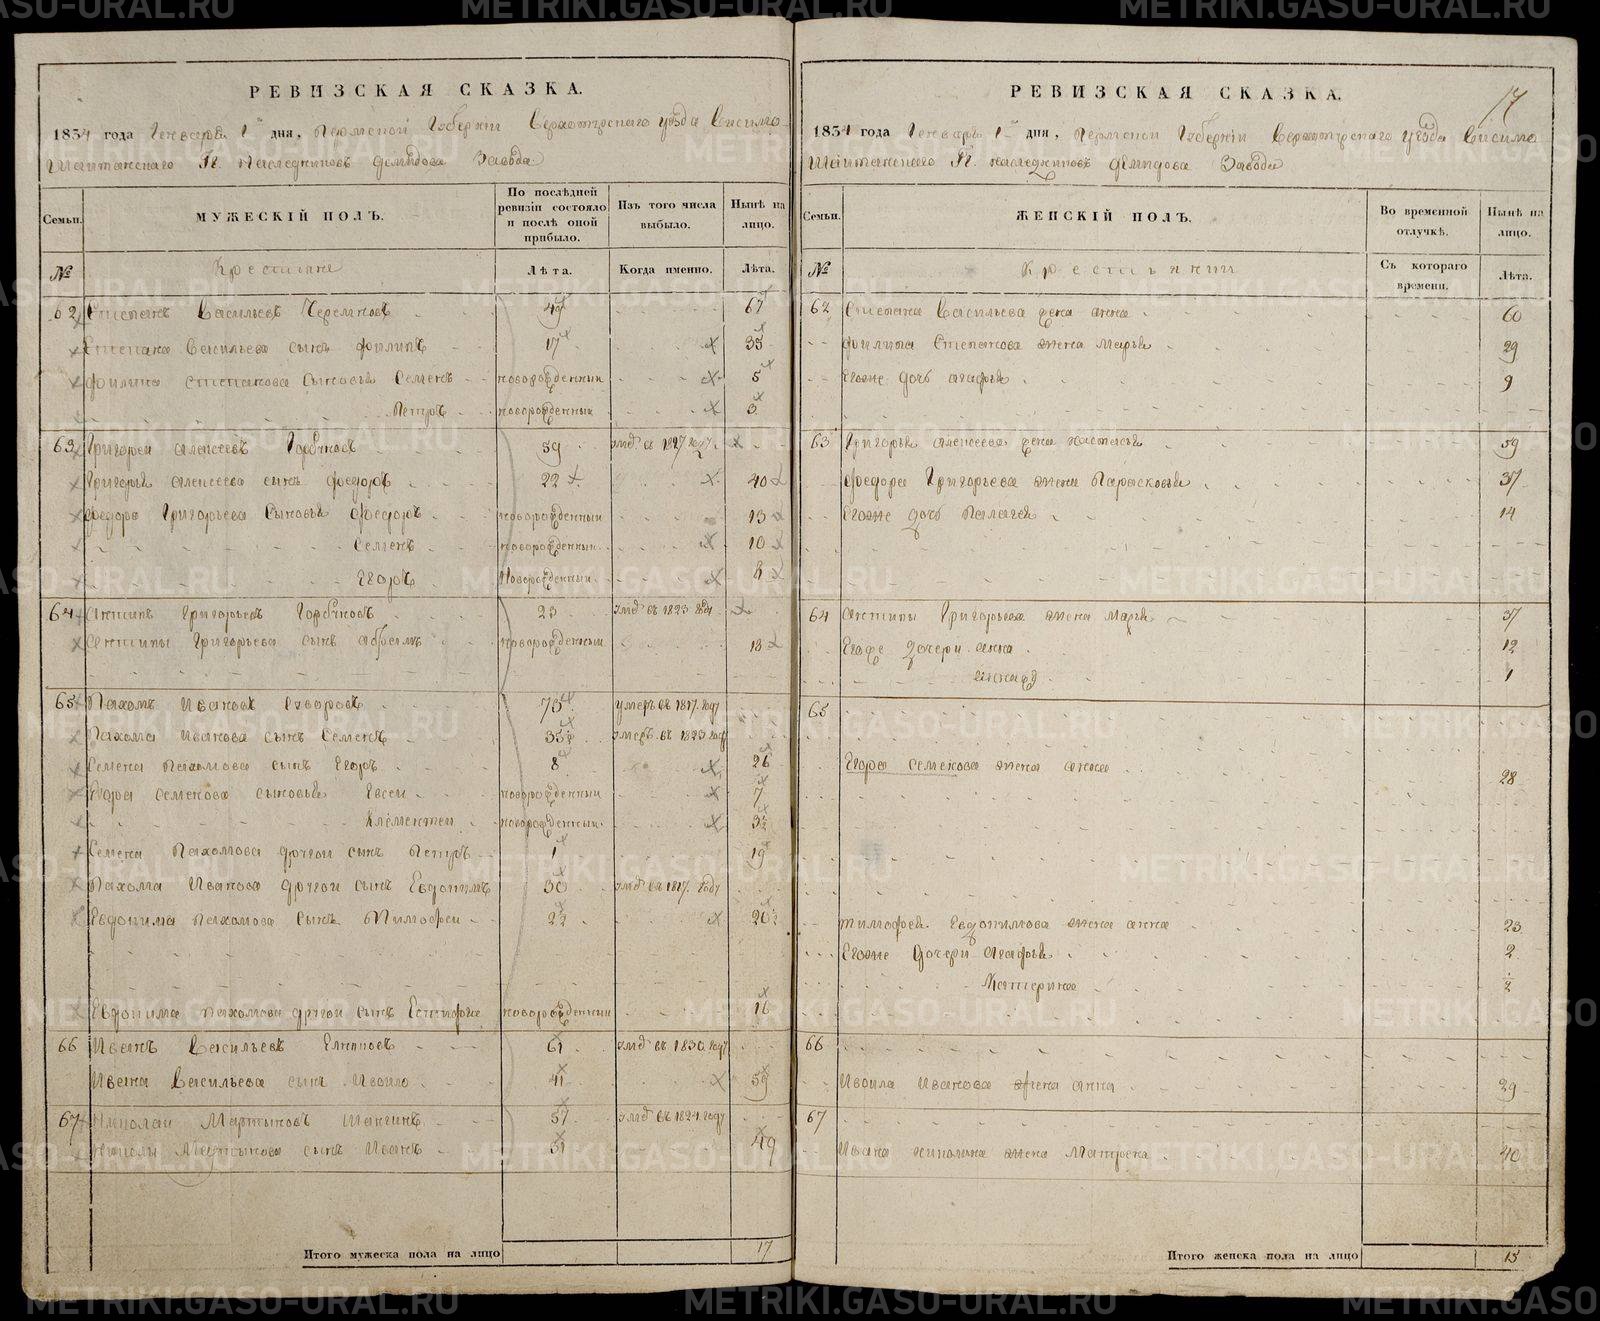 РЕВИЗСКАЯ СКАЗКА.
1834 года Генваря 1 дня, Пермской Губернiи Верхотурскаго уезда Висимо-
Шайтанскаго Н. наследниковъ Демидова Завода
Семьи.
МУЖЕСКIЙ ПОЛЪ.
По послѣдней ревизiи состояло и послѣ оной прибыло.
Изъ того числа выбыло.
Нынѣ на лицо.
№
Крестьяне
Лѣта.
Когда именно.
Лѣта.
62 Степанъ Васильевъ Черемновъ 49 67
Степана Васильева сынъ Филипъ 17 35
Филипа Степанова сыновья Семенъ новорожденный 5
Петръ новорожденный 3
63 Григорей Алексеевъ Горбуновъ 59 умр въ 1827 году
Григорья Алексеева сынъ Федоръ 22 40
Федора Григорьева сыновья Федоръ новорожденный 13
Семенъ новорожденный 10
Егоръ новорожденный 8
64 Антипъ Григорьевъ Горбуновъ 23 умр въ 1823 году
Антипы Григорьева сынъ Абрамъ новорожденный 18
65 Пахомъ Ивановъ 73 умеръ въ 1817 году
Пахома Иванова сынъ Семенъ 35 умеръ въ 1823 году
Семена Пахомова сынъ Егоръ 8 26
Егора Семенова сыновья Евсей новорожденный 7
Клементей новорожденный 3½
Семена Пахомова другой сынъ Петръ 1 19
Пахома Иванова другой сынъ Евдокимъ 30 умр въ 1817 году
Евдокима Пахомова сынъ Тимофей 2½ 20½
Евдокима Пахомова другой сынъ новорожденный 16
66 Иванъ Васильевъ 61 умр въ 1830 году
Ивана Васильева сынъ Ивойло 41 59
67 Николай Мартыновъ 57 умр въ 1824 году
Николы Мартынова сынъ Иванъ 31 49
Итого мужеска пола на лицо 17
РЕВИЗСКАЯ СКАЗКА.
17
1834 года Генваря 1 дня, Пермской Губернiи Верхотурскаго уезда Висимо
Шайтанскаго Н. наследниковъ Демидова Завода
Семьи.
ЖЕНСКIЙ ПОЛЪ.
Во временной отлучкѣ.
Нынѣ на лицо.
№
Крестьянки
Съ котораго времени.
Лѣта.
62 Степана Васильева жена Анна 60
Филипа Степанова жена Марья 29
Егоже дочь Агафья 9
63 Григорья Алексеева жена Настасья 59
Федора Григорьева жена Парасковья 37
Егоже дочь Палагея 14
64 Антипы Григорьева жена Марья 37
Егоже дочери Анна 12
1
65
Егора Семенова жена Анна 28
Тимофея Евдокимова жена Анна 23
Егоже дочери Агафья 2
Катерина ½
66
Ивойла Иванова жена Анна 39
67
Ивана Николина жена Матрена 40
Итого женска пола на лицо 15
METRIKI.GASO-URAL.RU